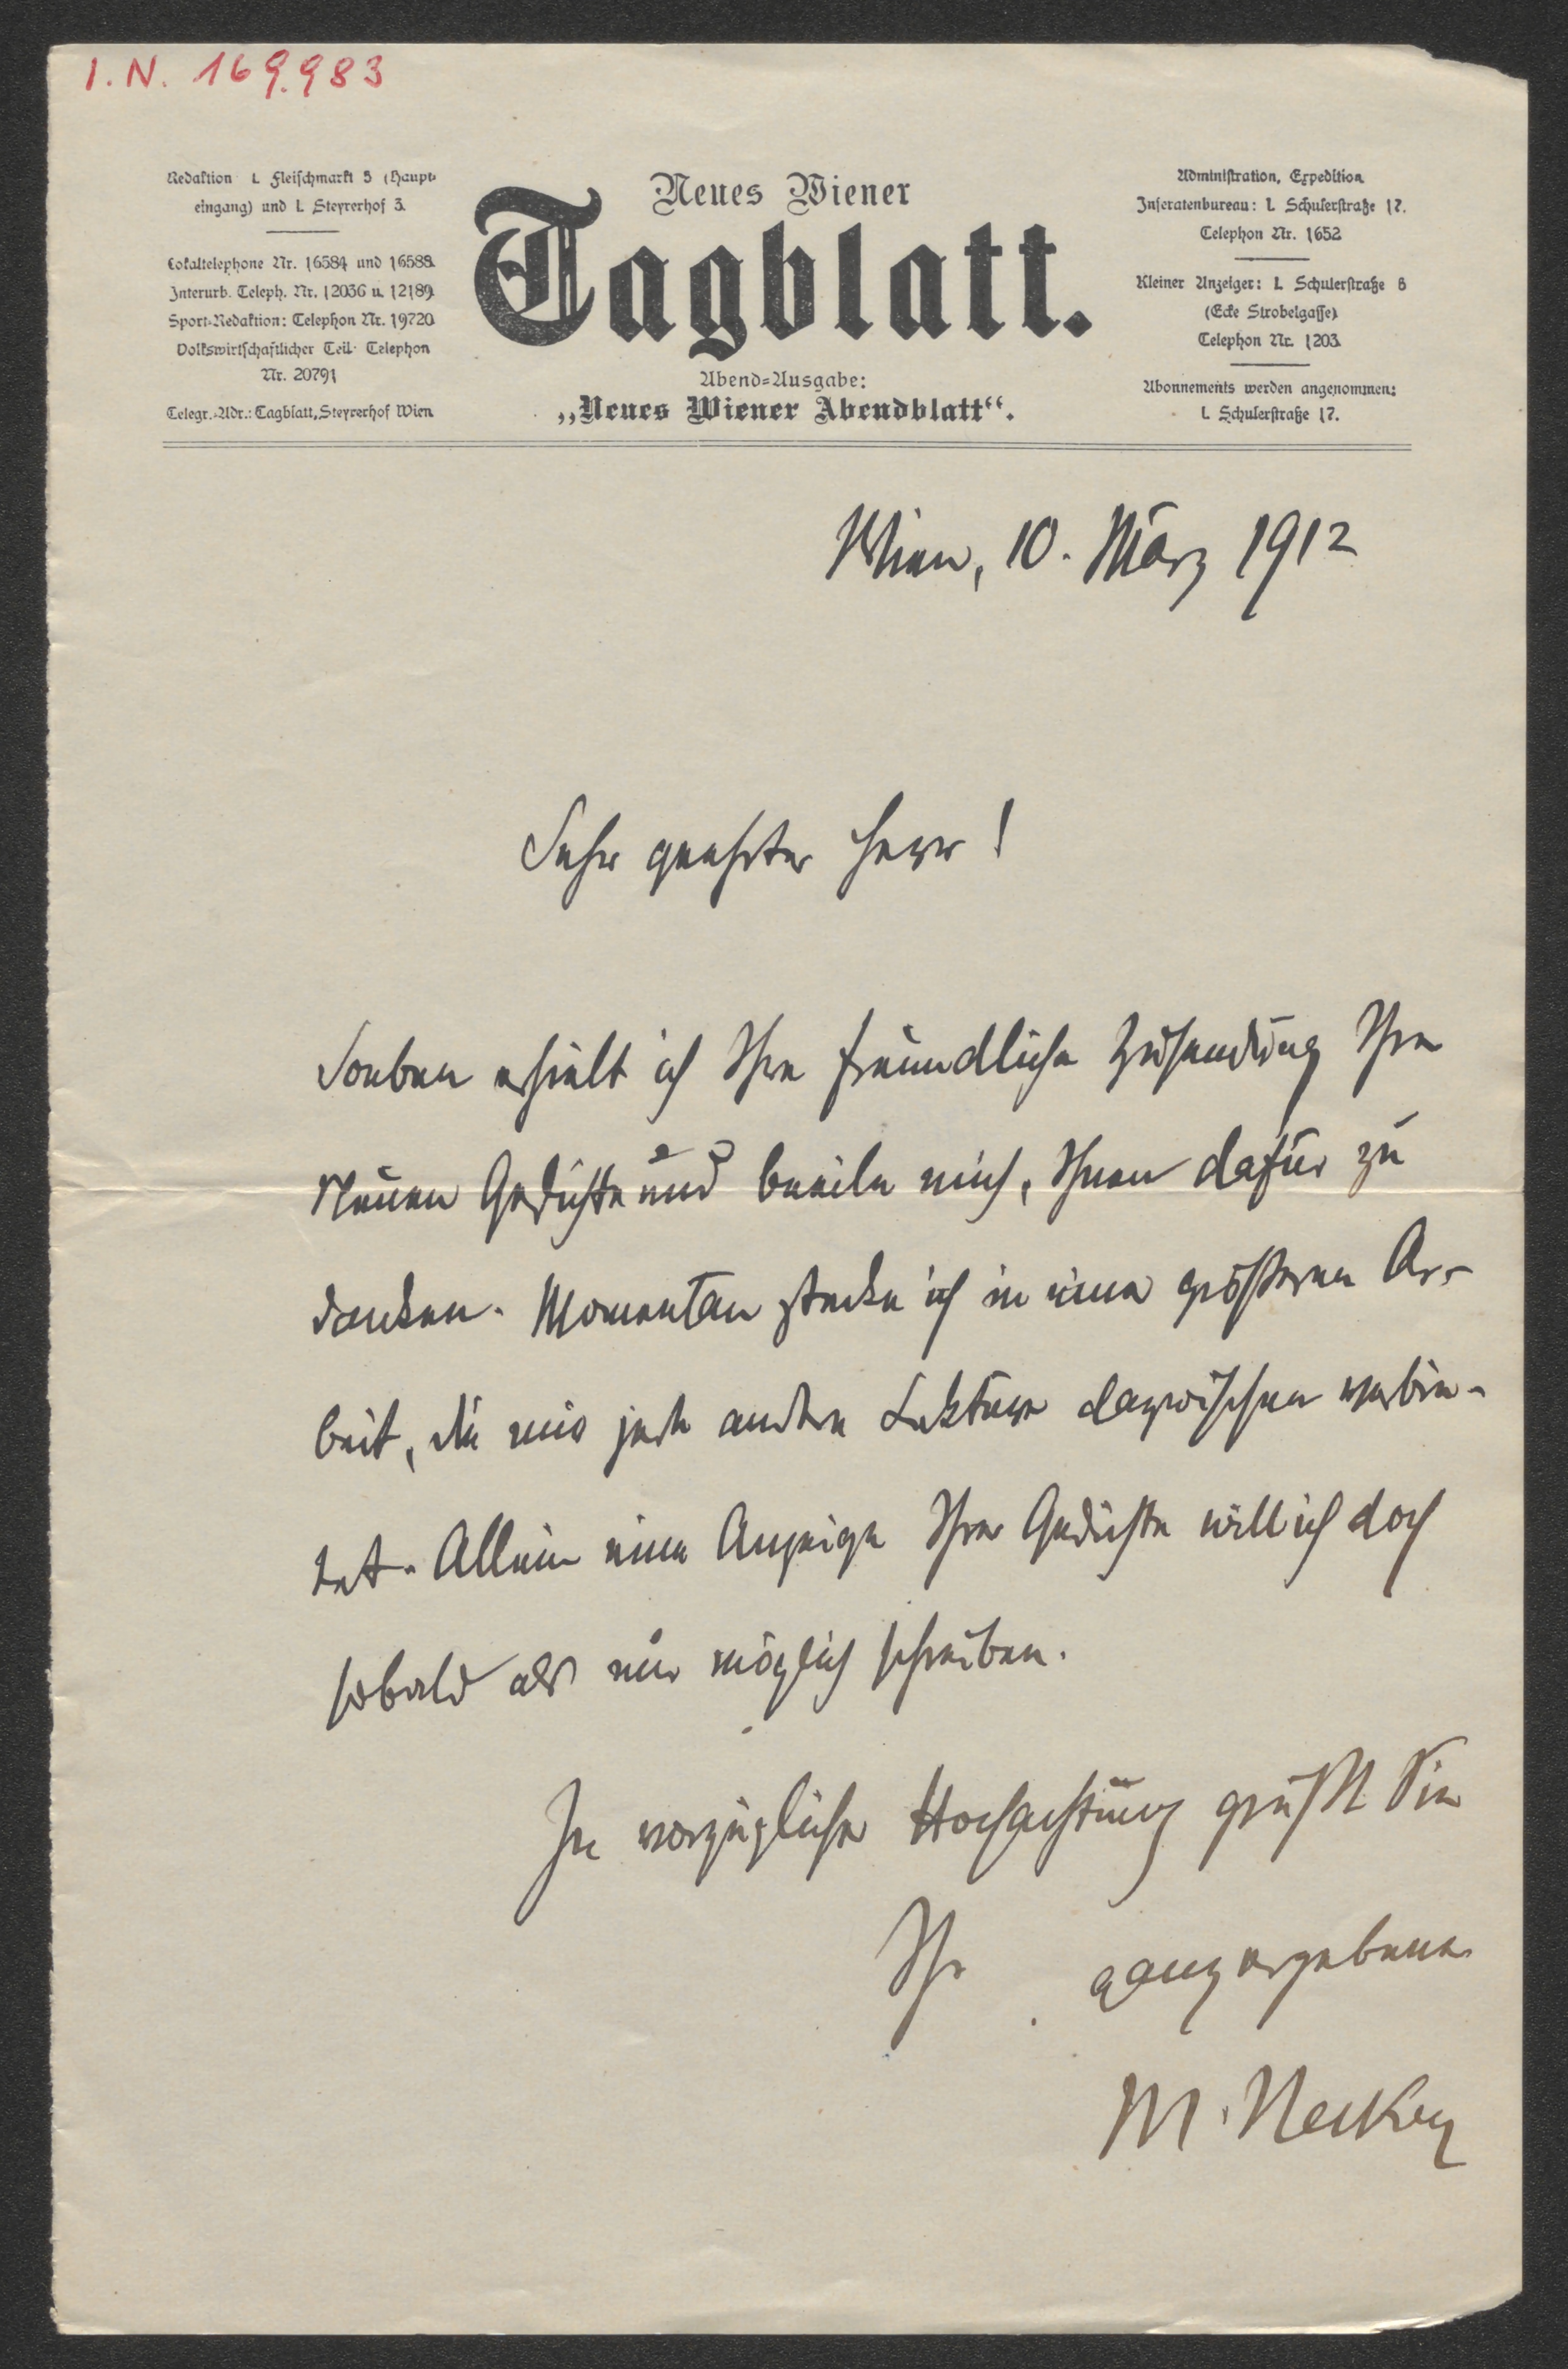 I. N. 169.983
Redaktion I. Fleischmarkt 5 (Haupt-
eingang) und I. Steyrerhof 3.
Lokaltelephone Nr. 16584 und 16588.
Interurb. Teleph. Nr. 12036 u. 12189.
Sport-Redaktion: Telephon Nr. 19720.
Volkswirtschaftlicher Teil: Telephon
Nr. 20791
Telegr.-Adr.: Tagblatt, Steyrerhof Wien.
Neues Wiener
Tagblatt.
Abend-Ausgabe:
„Neues Wiener Abendblatt“.
Administration, Expedition
Inseratenbureau: I. Schulerstraße 17.
Telephon Nr. 1652
Kleiner Anzeiger: I. Schulerstraße 8
(Ecke Strobelgasse)
Telephon Nr. 1203.
Abonnements werden angenommen:
I. Schulerstraße 17.
Wien, 10. März 1912
Sehr geehrter Herr!
Soeben erhielt ich Ihre freundliche Zusendung Ihrer
Neuen Gedichte und beeile mich, Ihnen dafür zu
danken. Momentan stecke ich in einer größeren Ar-
beit, die mir jede andere Lektüre dazwischen verbie-
tet. Allein eine Anzeige Ihrer Gedichte will ich doch
sobald als nur möglich schreiben.
In vorzüglicher Hochachtung grüßt Sie
Ihr ganz ergebener
M. Necker